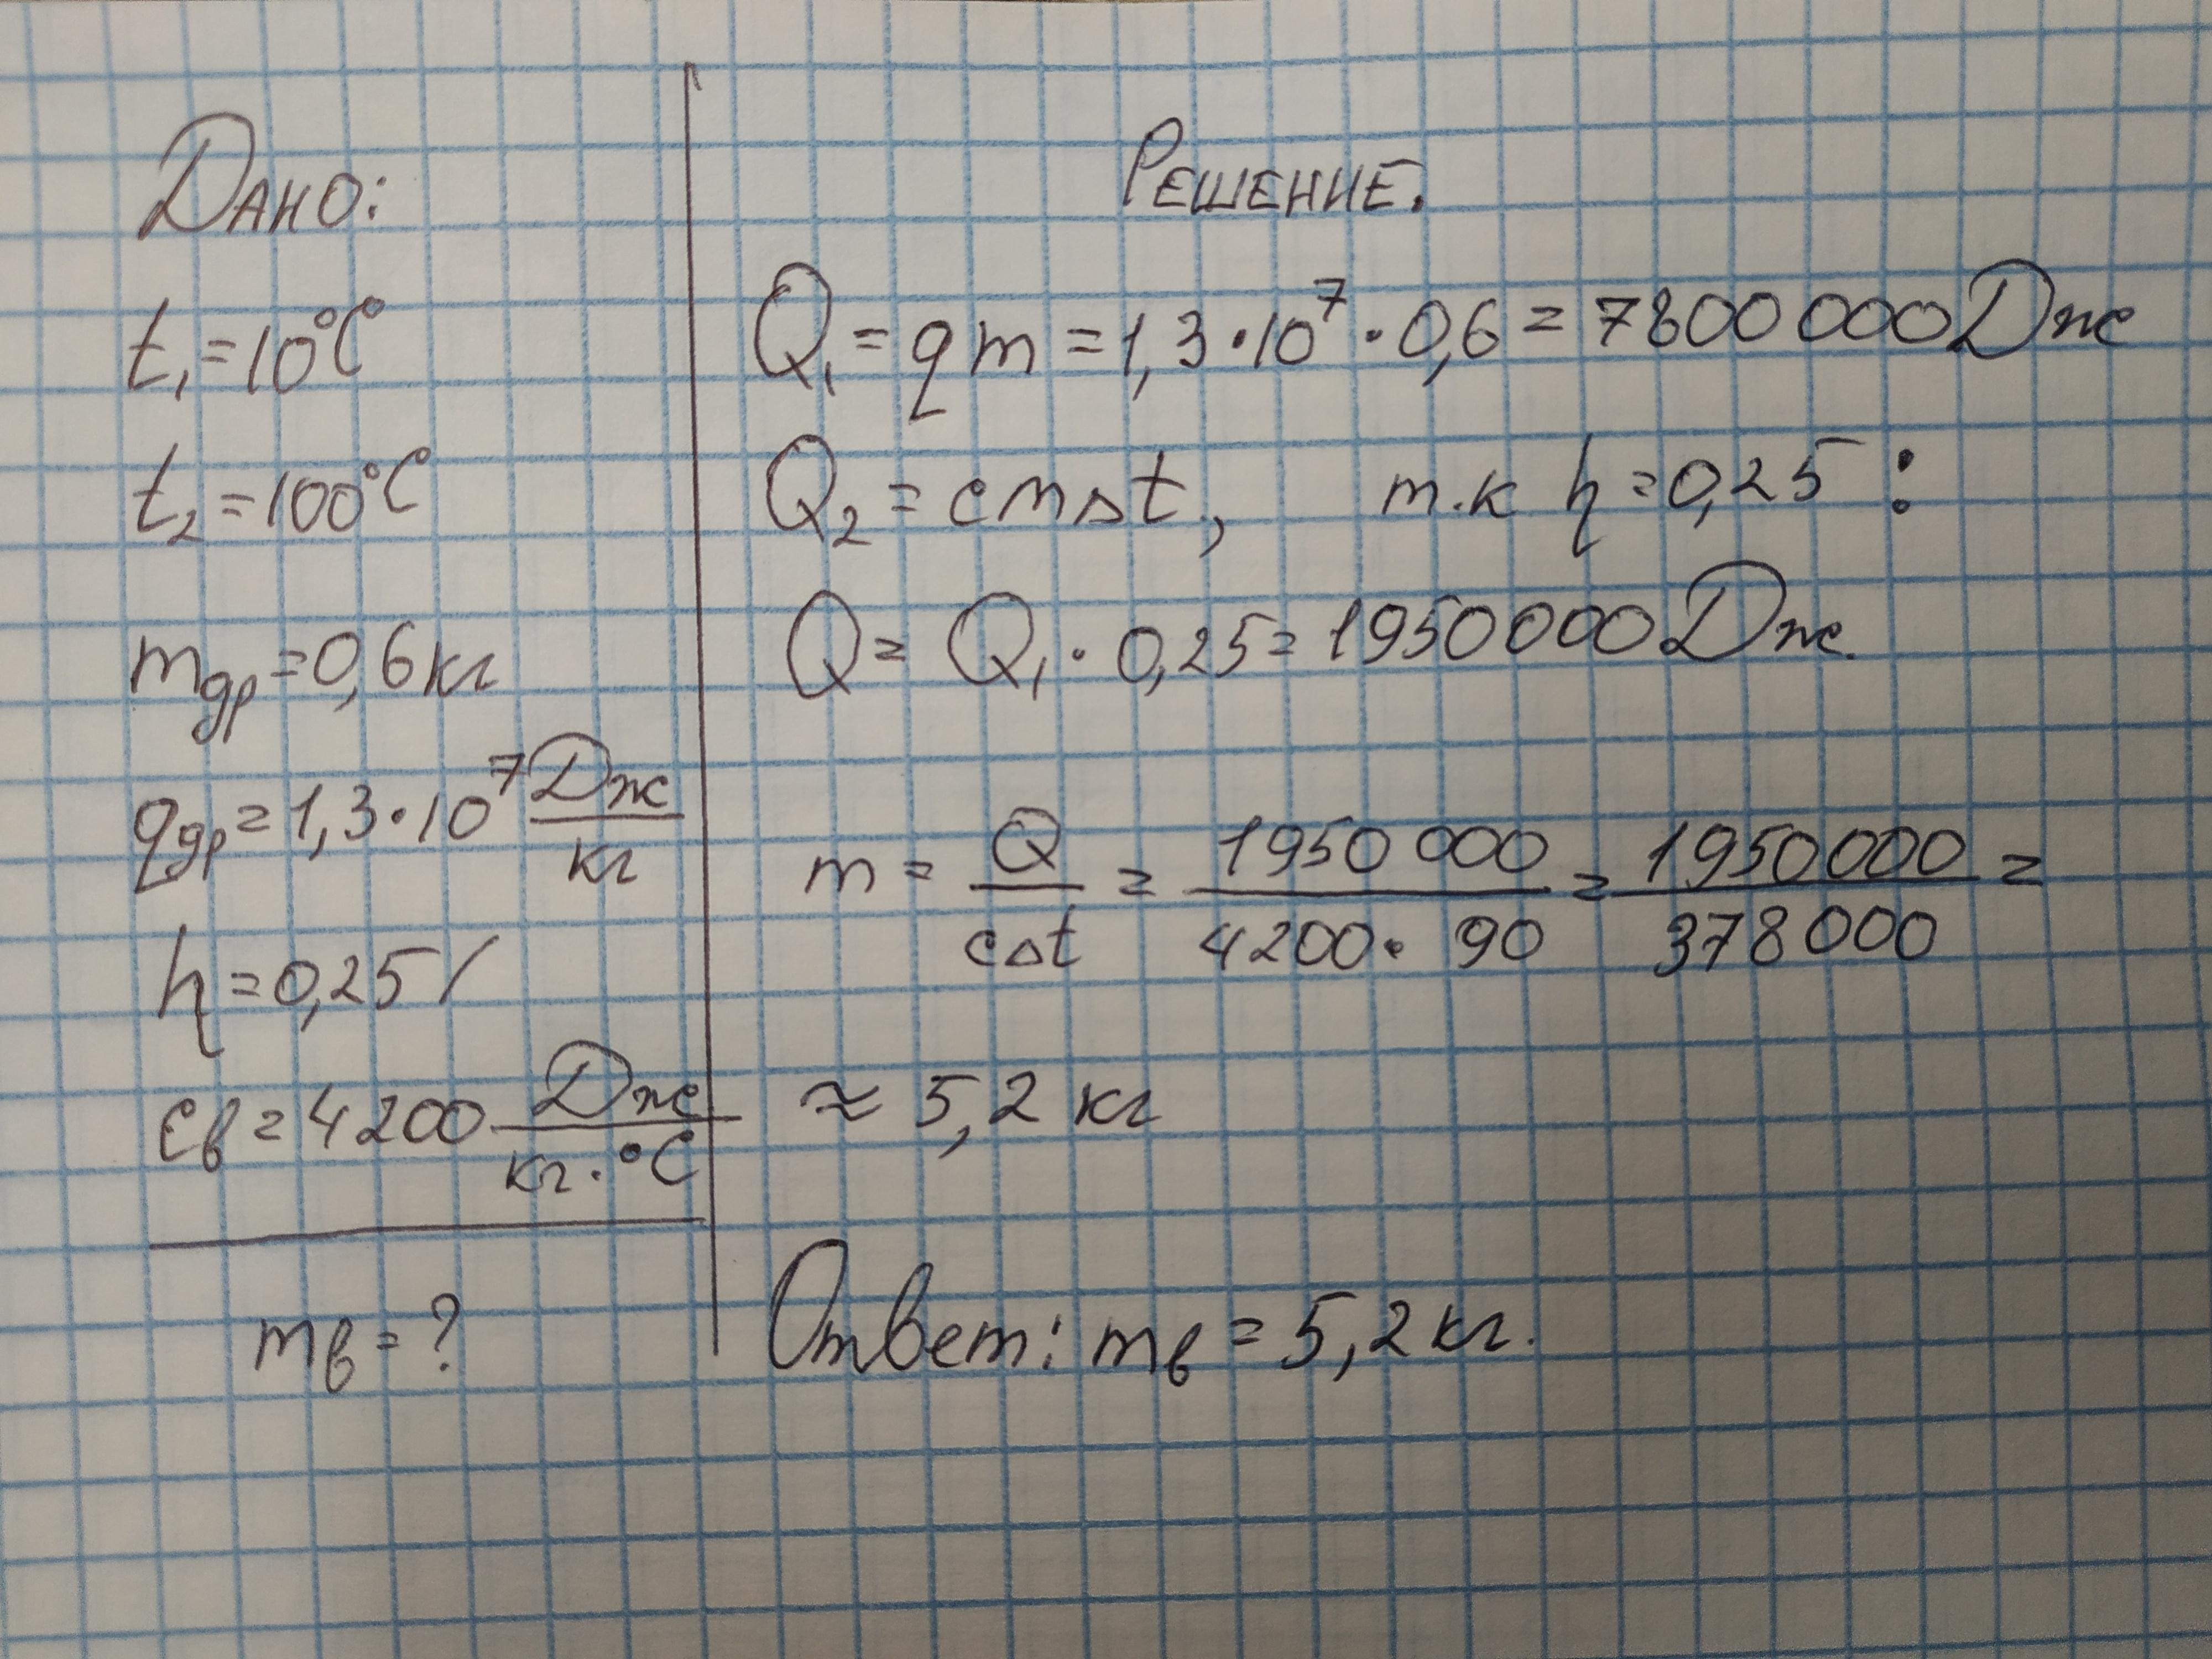 Дано:
t₁=10°C
t₂=100°C
mдр=0,6кг
qдр=1,3·10⁷ Дж/кг
η=0,25/
cв=4200 Дж/кг·°C
mв=?
Решение.
Q₁=qm=1,3·10⁷·0,6=7800000Дж
Q₂=cmΔt, т.к η=0,25:
Q=Q₁·0,25=1950000Дж.
m=Q/cΔt=1950000/4200·90=1950000/378000=
≈5,2кг
Ответ: mв=5,2кг.